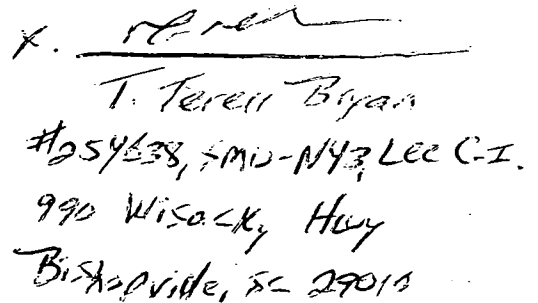 x.
T. Terell Bryan
#254638, SMU-N43, Lee C.I.
990 Wisacky Hwy
Bishopville, SC 29010